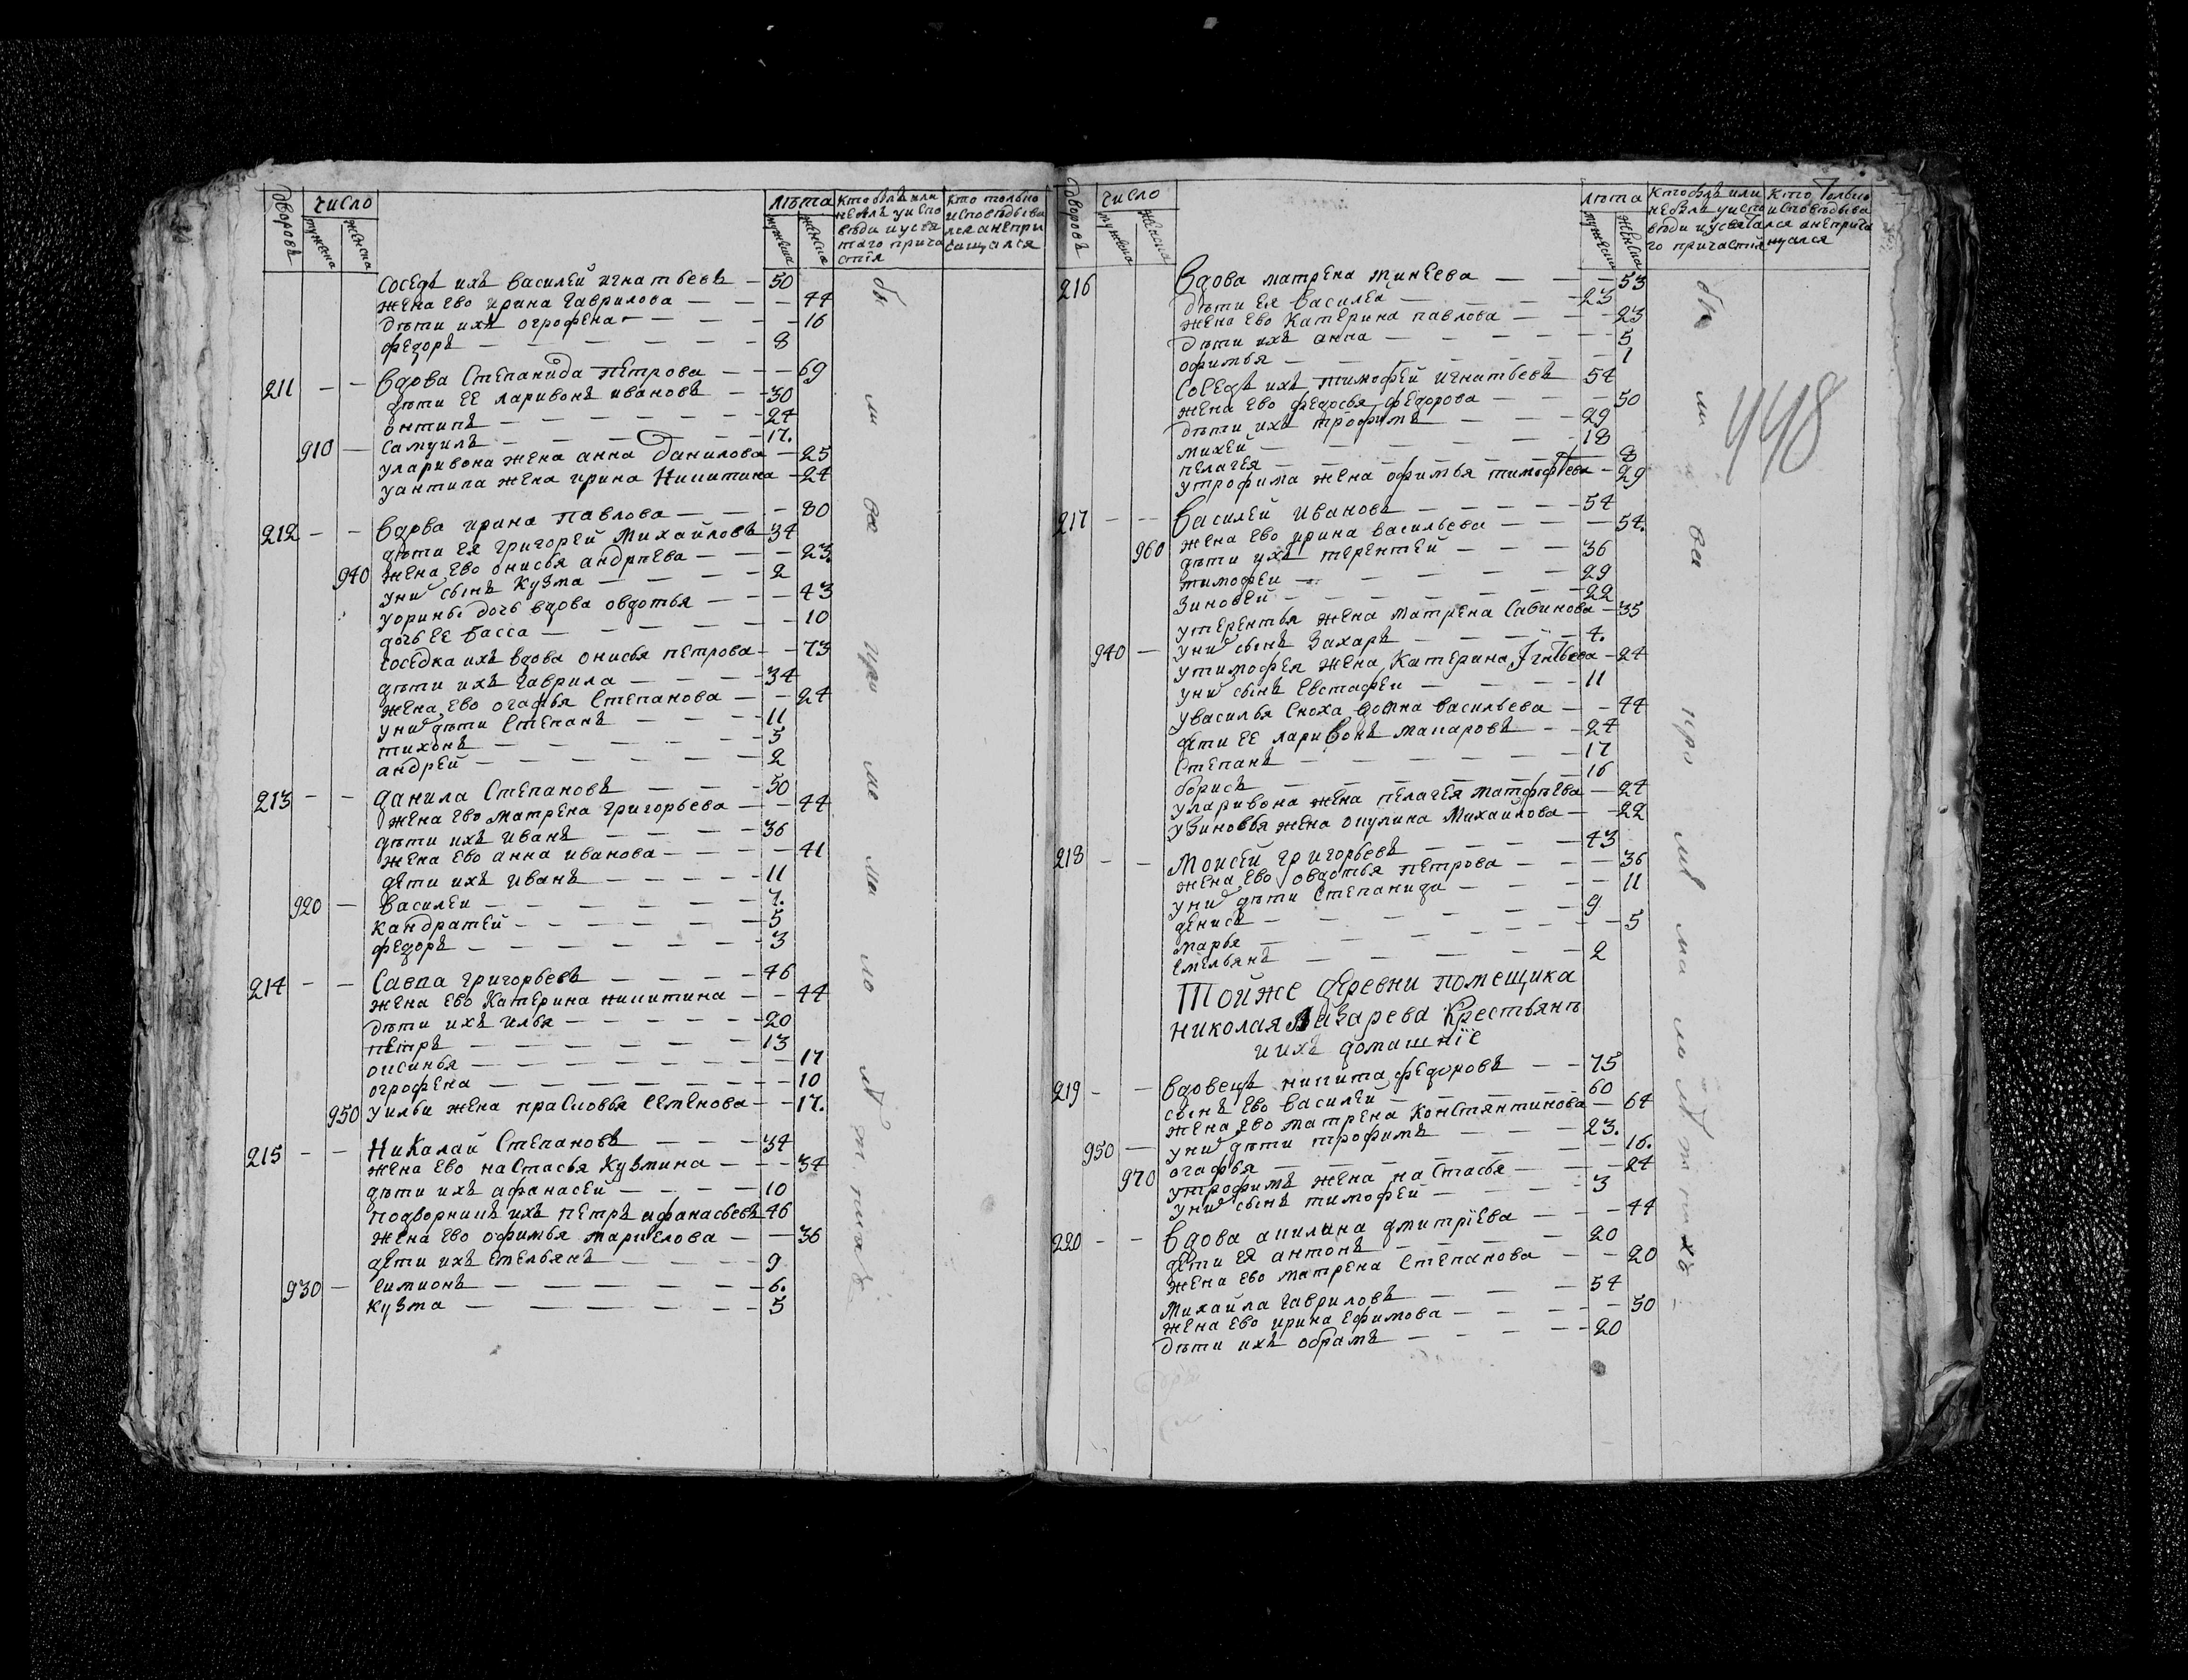 дворовъ число мужска женска лѣта мужска женска кто былъ или небылъ уиспо вѣди иусвя таго прича стїя кто только исповѣдыва лся анепри чащался
Соседъ ихъ василей игнатьевъ — 50
жена ево ирина гаврилова — — 44
дѣти ихъ огрофена — — — 16
федоръ — — — 8
211 — — вдова Степанида петрова — — 69
дѣти ее ларивонъ ивановъ — 30
онтипъ — — — 24
910 — Самуилъ — — — 17.
уларивона жена анна данилова — 25
уантипа жена ирина Никитина — 24
212 — — вдова ирина павлова — — 80
дѣти ея григорей михайловъ 34
940 жена ево онисья андрѣева — — 23.
уни сынъ Кузма — — — 2
уорины дочь вдова овдотья — — 43
дочь ее васса — — — 10
соседка ихъ вдова онисья петрова — 73
дѣти ихъ гаврила — — — 34
жена ево огафья Степанова — — 24
уни дѣти Степанъ — — — 11
тихонъ — — — 5
андрей — — — 2
213 — — данила Степановъ — — 50
жена ево матрена григорьева — — 44
дѣти ихъ иванъ — — — 36
жена ево анна иванова — — — 41
дѣти ихъ иванъ — — — 11
920 — василеи — — — 7.
кандратей — — — 5
федоръ — — — 3
214 — — Савва григорьевъ — — — 46
жена ево Катерина никитина — — 44
дѣти ихъ илья — — — 20
петръ — — — 13
оксинья — — — 17
огрофена — — — 10
950 уильи жена прасковья семенова — — 17.
215 — — Николай Степановъ — — — 34
жена ево настасья Кузмина — — 34
дѣти ихъ афанасей — — — 10
подворникъ ихъ петръ афанасьевъ 46
жена ево офимья маркелова — — 36
дѣти ихъ емельянъ — — — 9
930 — симионъ — — — 6.
кузма — — — 5
бы ли ва
N
дворовъ число мужска женска лѣта мужска женска кто былъ или небылъ уиспо вѣди иусвята го причастїя кто только исповѣдыва лся анеприча щался
448
216 вдова матрена минеева — — 53
дѣти ея василей — — — 23
жена ево Катерина павлова — — 23
дѣти ихъ анна — — — 5
офимья — — — 1
Соседъ ихъ тимофей игнатьевъ 54
жена ево федосья федорова — — 50
дѣти ихъ трофимъ — — 29
михей — — — 18
пелагея — — — 8
утрофима жена офимья тимофѣева — 29
217 — — василей ивановъ — — — 54
960 жена ево ирина васильева — — 54.
дѣти ихъ терентей — — — 36
тимофеи — — — 29
Зиновей — — — 22
утерентья жена матрена Савинова — 35
уни сынъ Захаръ — — — 4.
940 — утимофея жена Катерина — 24
уни сынъ Евстафеи — — — 11
увасилья сноха домна васильева — — 44
дѣти ее ларивонъ макаровъ — — 24
Степанъ — — — 17
борисъ — — — 16
уларивона жена пелагея матфѣева — 24
узиновья жена окулина Михаилова — — 22
218 — — Моисей григорьевъ — — — 43
жена ево овдотья петрова — — — 36
уни дѣти Степанида — — — 11
денисъ — — — 9
марья — — — 5
емельянъ — — — 2
Тойже деревни помещика
николая лазарева Крестьянъ
иихъ домашнїе
219 — — вдовецъ никита федоровъ — — 75
сынъ ево василей — — — 60
жена ево матрена Константинова — 64
950 — уни дѣти трофимъ — — 23.
970 огафья — — — 16.
утрофимъ жена настасья — — 24
уни сынъ тимофей — — — 3
220 — — вдова акилина дмитрїева — — 44
дѣти ея антонъ — — — 20
жена ево матрена Степанова — — 20
михайла гавриловъ — — — 54
жена ево ирина ефимова — — — 50
дѣти ихъ обрамъ — — — 20
бы ли ва
N